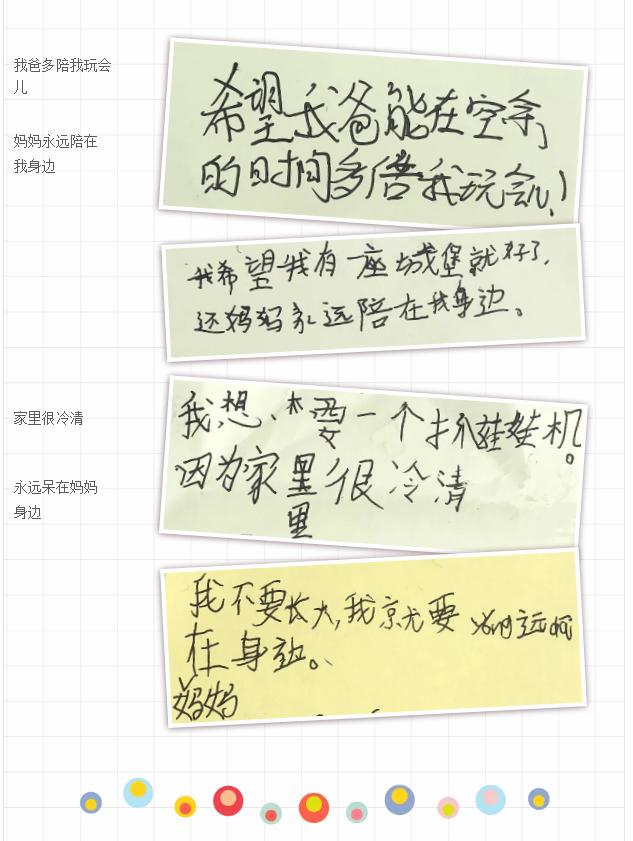 我爸多陪我玩会
儿
妈妈永远陪在
我身边
希望我爸能在空余
的时间多陪我玩会儿!
我希望我有一座城堡就好了,
还妈妈永远陪在我身边。
家里很冷清
我想要一个抓娃娃机。
因为家里很冷清
里
永远呆在妈妈
身边
我不要长大,我京尤要 yong远
在身边。
妈妈